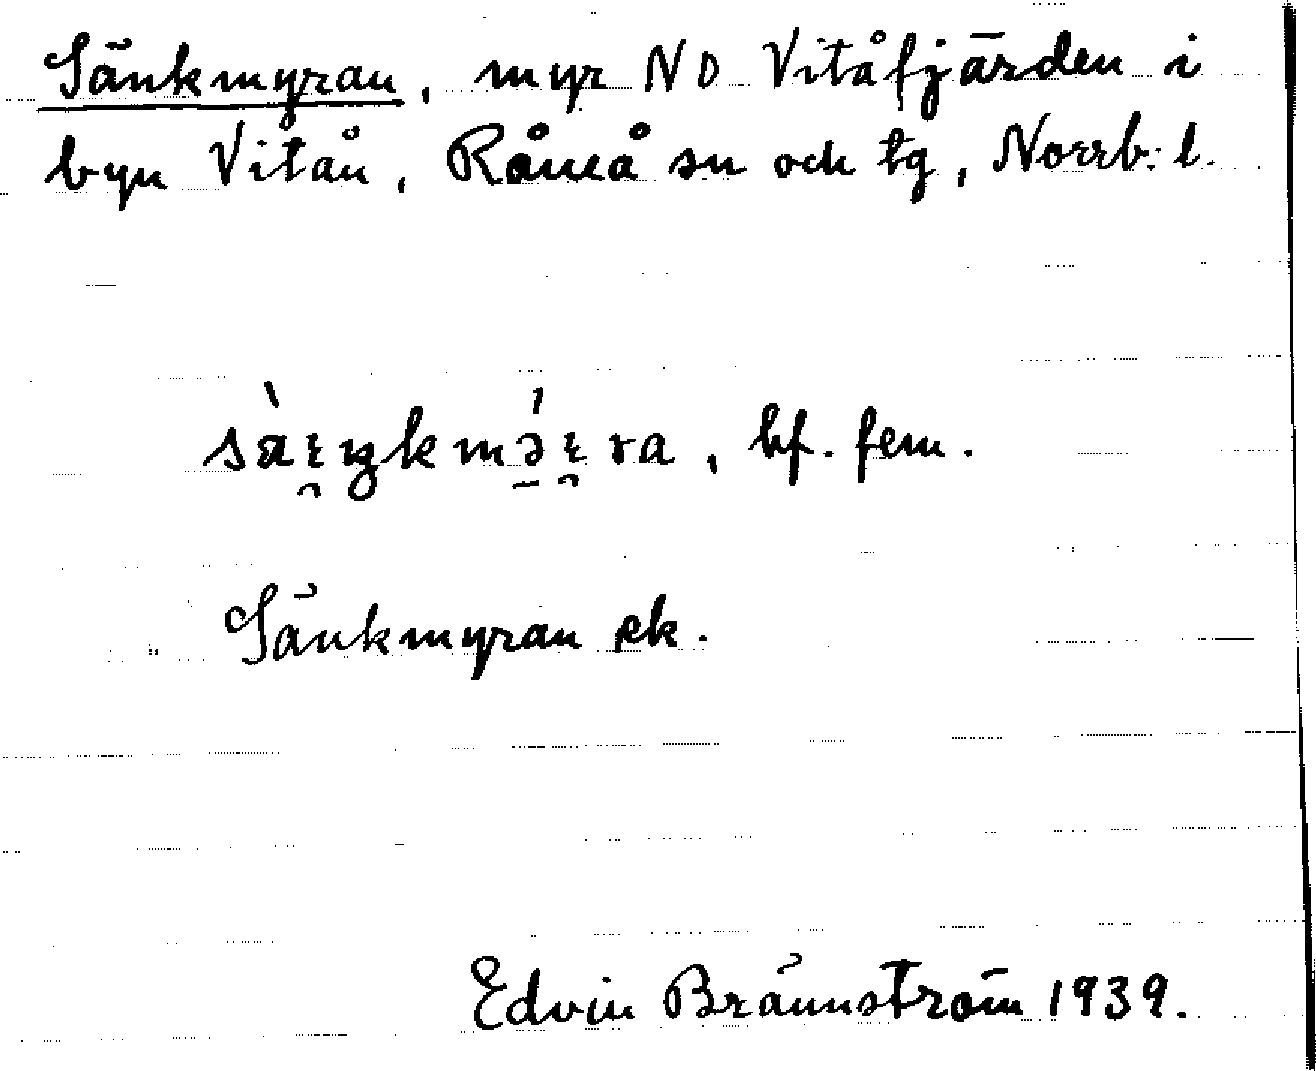 Sänkmyran, myr NO Vitåfjärden i
byn Vitån, Råneå sn och tg, Norrb: l.
bf. fem.
Sänkmyran ek.
Edvin Brännström 1939.